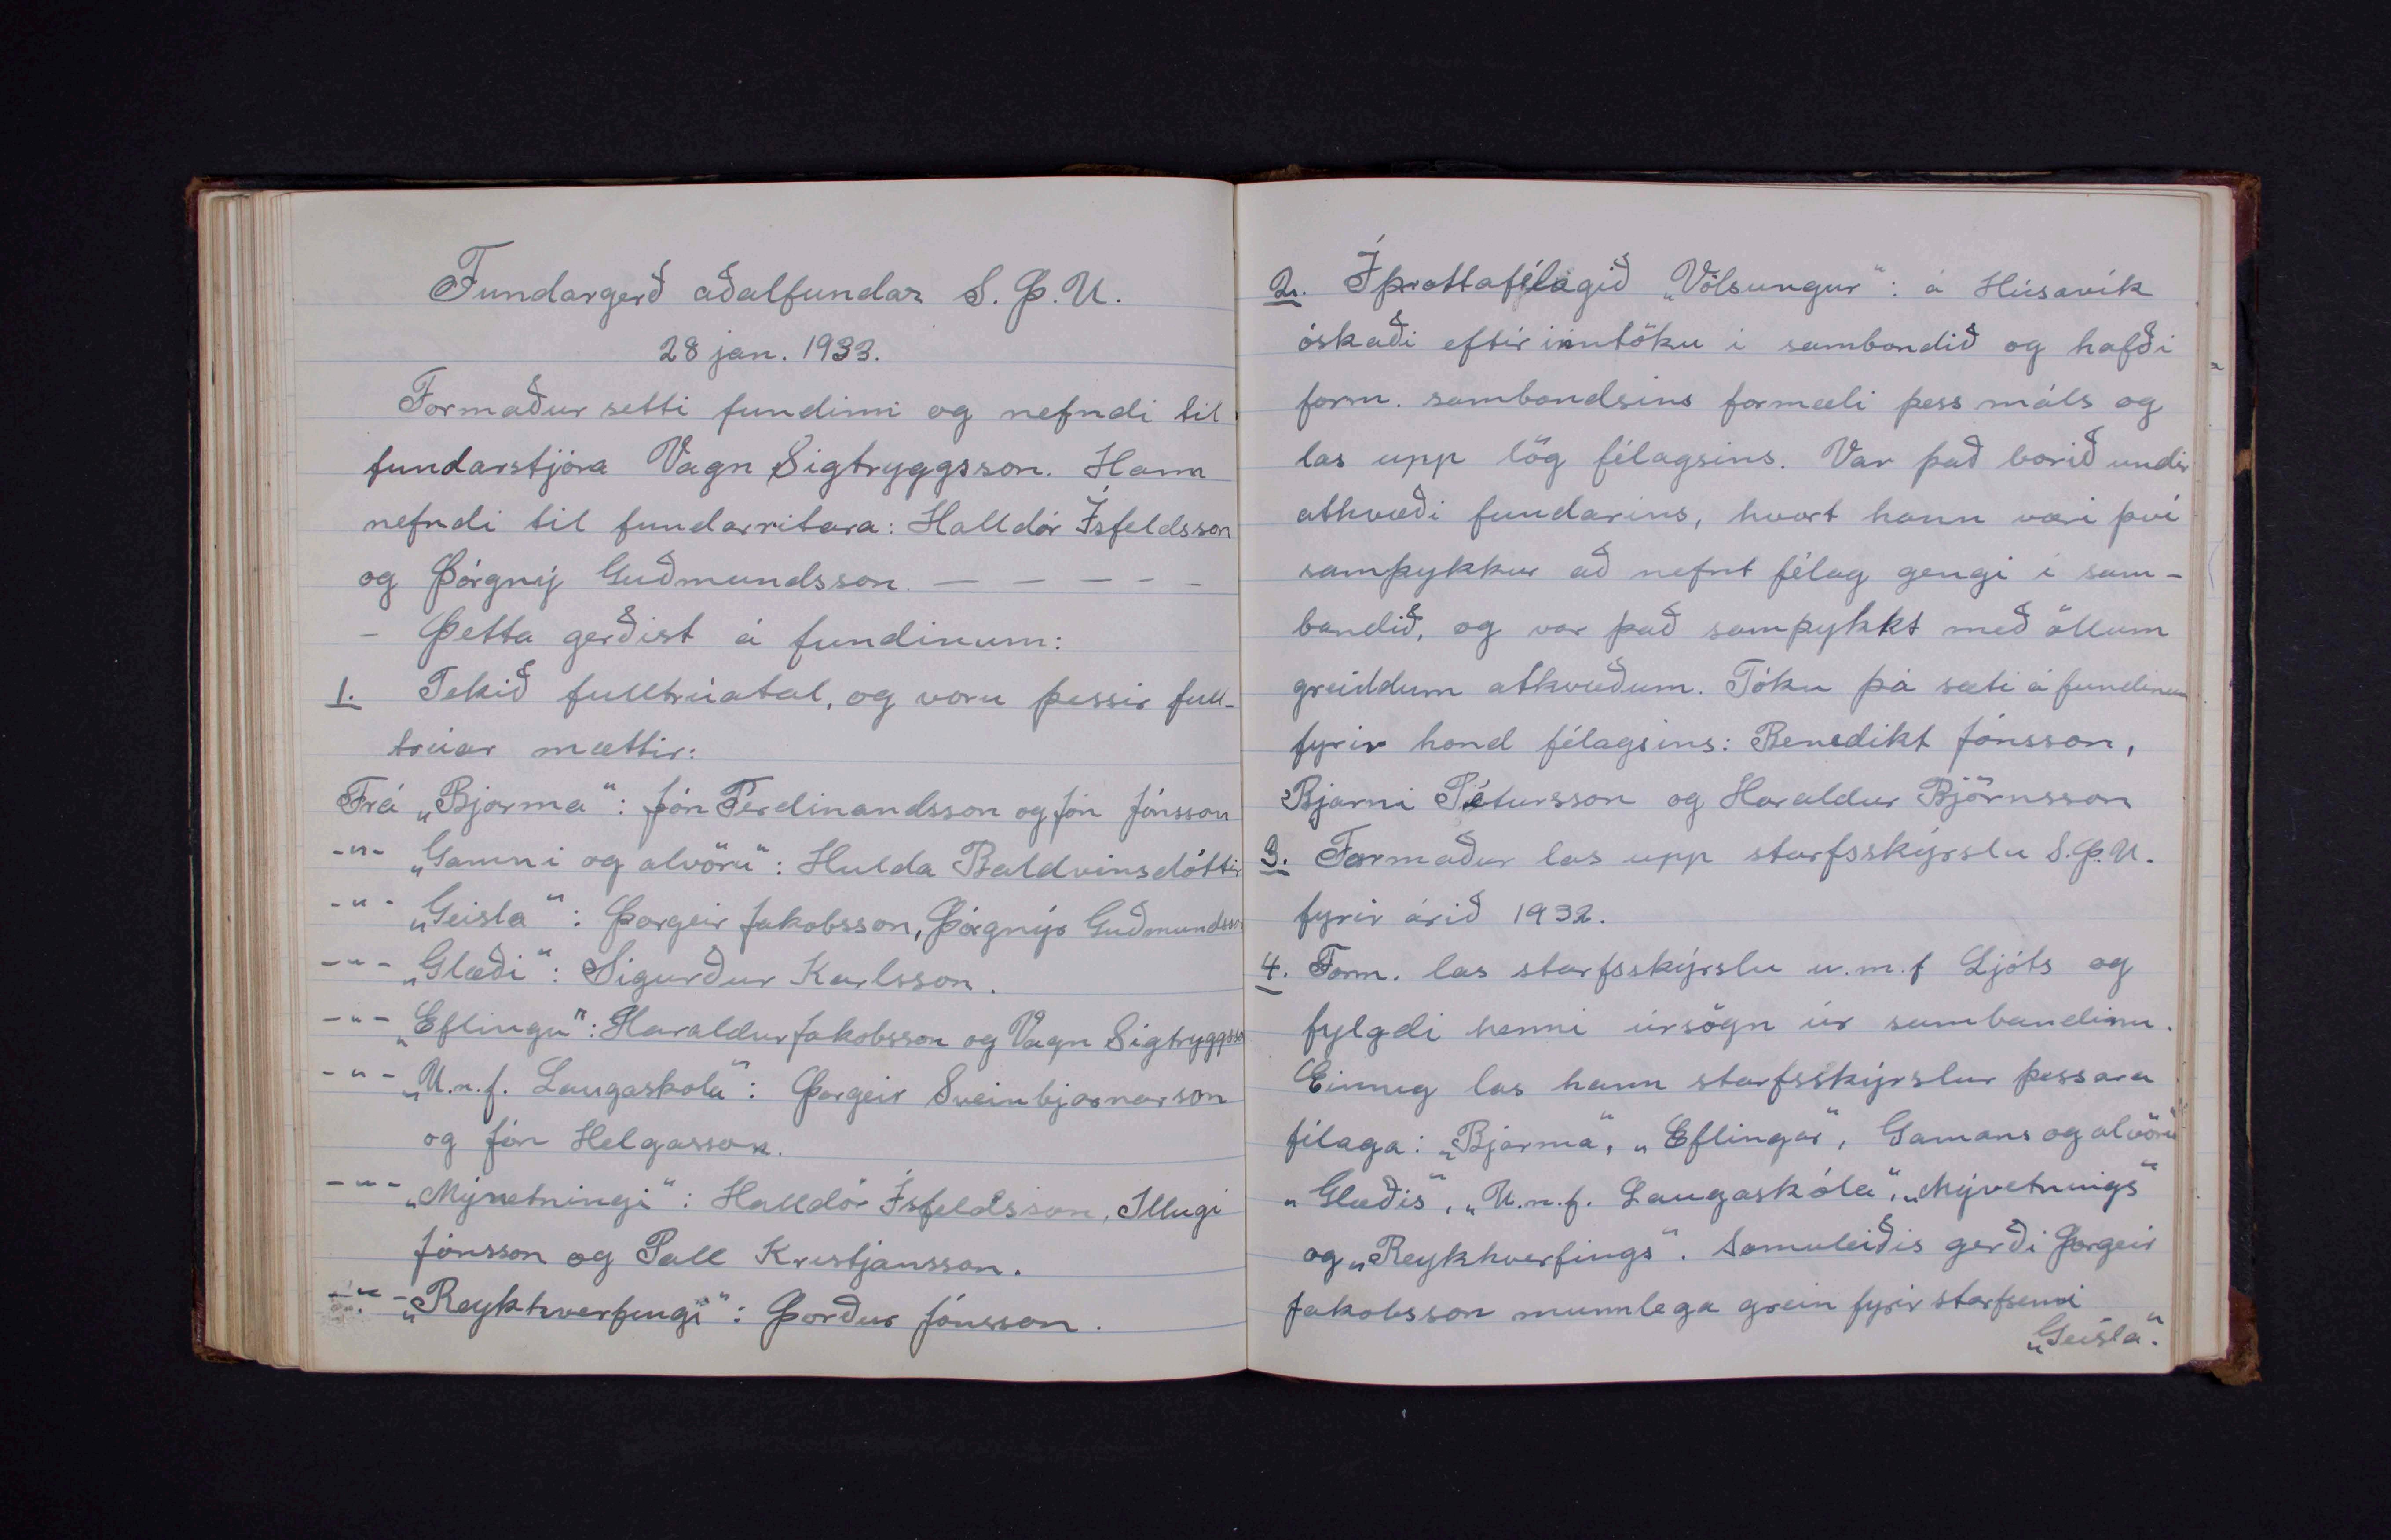 Fundargerð aðalfundar S.Þ.U.
28 jan. 1933.
Formaður setti fundinn og nefndi til
fundarstjóra Vagn Sigtryggsson. Hann
nefndi til fundarritara: Halldór Ísfeldsson
og Þórgný Guðmundsson. — — — — —
- Þetta gerðist á fundinum:
1. Tekið fulltrúatal, og voru þessir full-
trúar mættir:
Frá „Bjarma“: Jón Ferdinandsson og Jón Jónsson
-"- „Gamni og alvöru“: Hulda Baldvinsdóttir
-"- „Geisla“: Þorgeir Jakobsson, Þórgnýr Guðmundsson
-"- „Glæði“: Sigurður Karlsson.
-"- „Eflingu“: Haraldur Jakobsson og Vagn Sigtryggsson
-"- „U.n.f. Laugaskóla“: Þorgeir Sveinbjarnarson
og Jón Helgasson.
-"- „Mývetningi“: Halldór Ísfeldsson, Illugi
Jónsson og Páll Kristjánsson.
-"- „Reykhverfingi“: Þorður Jónsson.
2. Íþrottafélagið „Völsungur“: á Húsavík
óskaði eftir inntöku í sambandið og hafði
form. sambandsins formæli þess máls og
las upp lög félagsins. Var það borið undir
atkvæði fundarins, hvort hann væri því
samþykkur að nefnt félag gengi í sam-
bandið, og var það samþykkt með öllum
greiddum atkvæðum. Tóku þá sæti á fundinum
fyrir hond félagsins: Benedikt Jónsson,
Bjarni Pétursson og Haraldur Björnsson
3. Formaður las upp starfsskýrslu S.Þ.U.
fyrir árið 1932.
4. Form. las starfsskýrslu u.m.f Ljóts og
fylgdi henni úrsögn úr sambandinu.
Einnig las hann starfsskýrslur þessara
félaga: „Bjarma“, „Eflingar“, Gamans og alvöru“
„Glæðis“, „U.n.f. Laugaskóla“, „Mývetnings“
og „Reykhverfings“. Sömuleiðis gerði Þorgeir
Jakobsson munnlega grein fyrir starfsemi
„Geisla“.